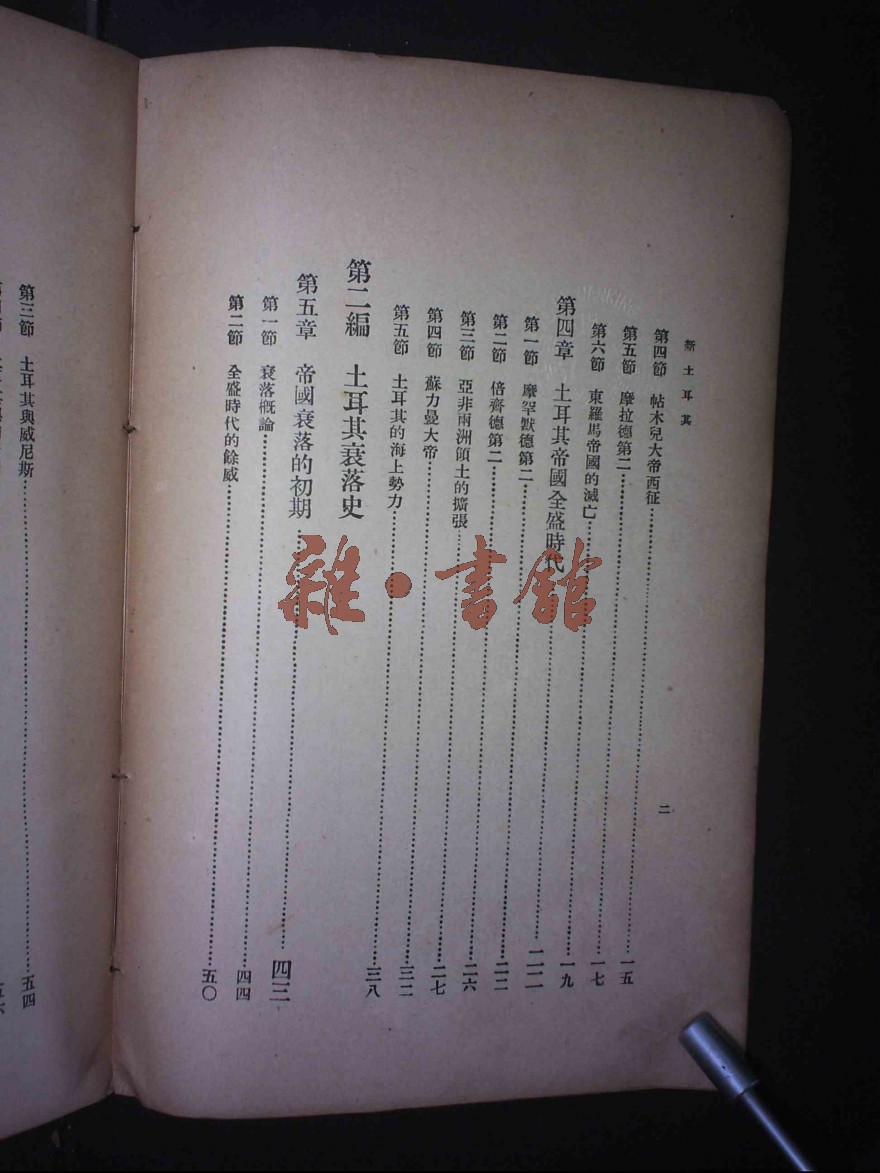 新土耳其
二
第四節 帖木兒大帝西征……一五
第五節 摩拉德第二……一七
第六節 東羅馬帝國的滅亡……一九
第四章 土耳其帝國全盛時代……二二
第一節 摩罕默德第二……二二
第二節 倍齊德第二……二六
第三節 亞非兩洲領土的擴張……二七
第四節 蘇力曼大帝……三二
第五節 土耳其的海上勢力……三八
第二編 土耳其衰落史
第五章 帝國衰落的初期……四三
第一節 衰落概論……四四
第二節 全盛時代的餘威……五〇
第三節 土耳其與威尼斯……五四
雜·書館